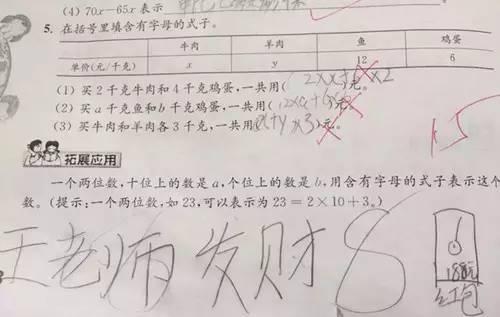 (4) 70x-65x 表示
5. 在括号里填含有字母的式子。
牛肉 羊肉 鱼 鸡蛋
单价(元/千克) x y 12 6
(1) 买2千克牛肉和4千克鸡蛋,一共用( )元。
(2) 买a千克鱼和b千克鸡蛋,一共用( )元。
(3) 买牛肉和羊肉各3千克,一共用(x+y×3)元。
拓展应用
一个两位数,十位上的数是a,个位上的数是b,用含有字母的式子表示这个
数。(提示:一个两位数,如23,可以表示为23=2×10+3。)
王老师发财
188元
红包